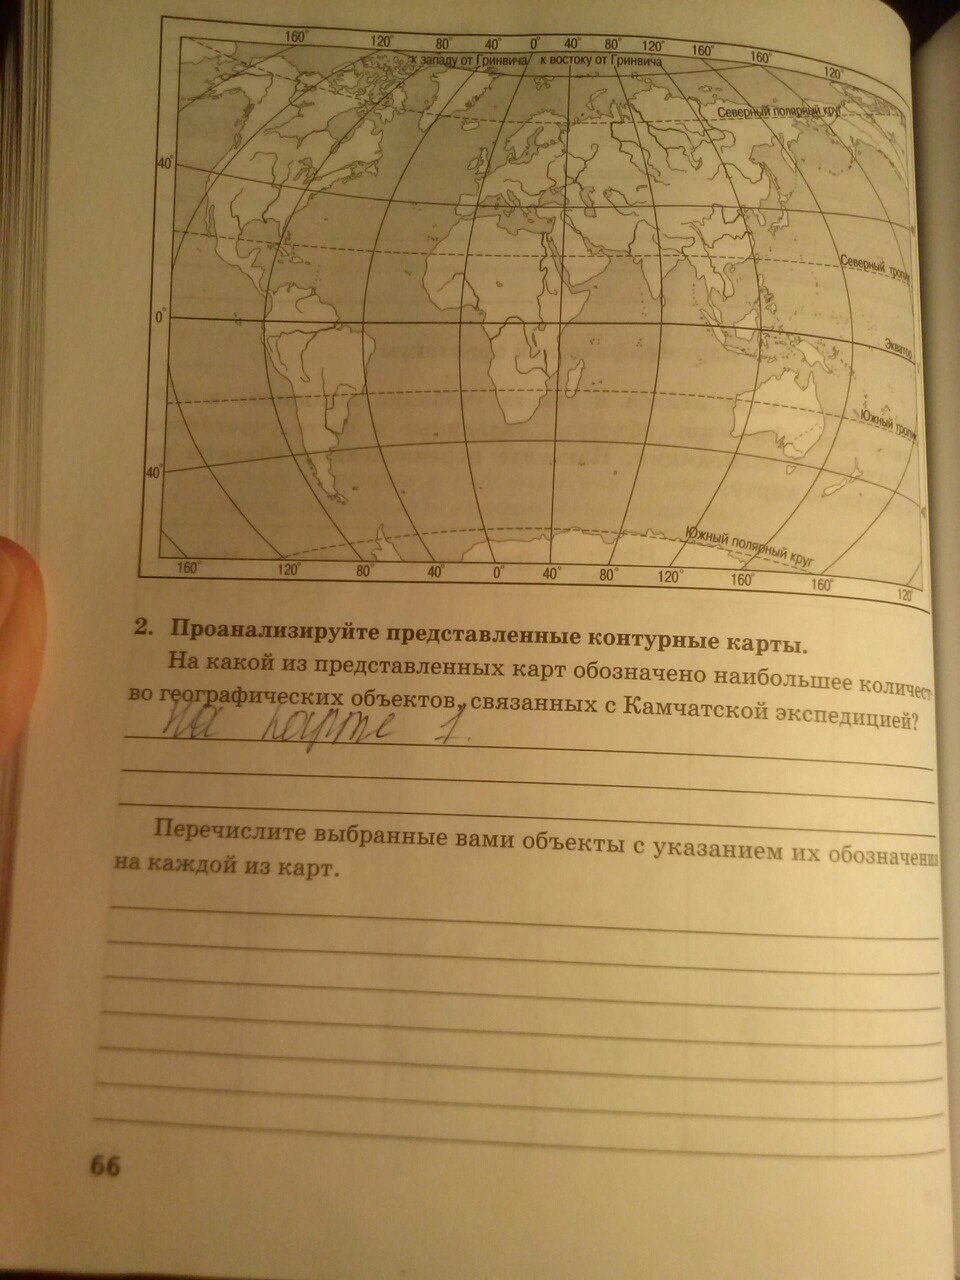 160° 120° 80° 40° 0° 40° 80° 120° 160° 160° 120°
к западу от Гринвича к востоку от Гринвича
Северный полярный круг
40°
Северный тропи
0°
Экватор
Южный тропи
40°
Южный полярный круг
160° 120° 80° 40° 0° 40° 80° 120° 160° 160° 120°
2. Проанализируйте представленные контурные карты.
На какой из представленных карт обозначено наибольшее количест-
во географических объектов, связанных с Камчатской экспедицией?
На карте 1.
Перечислите выбранные вами объекты с указанием их обозначения
на каждой из карт.
66